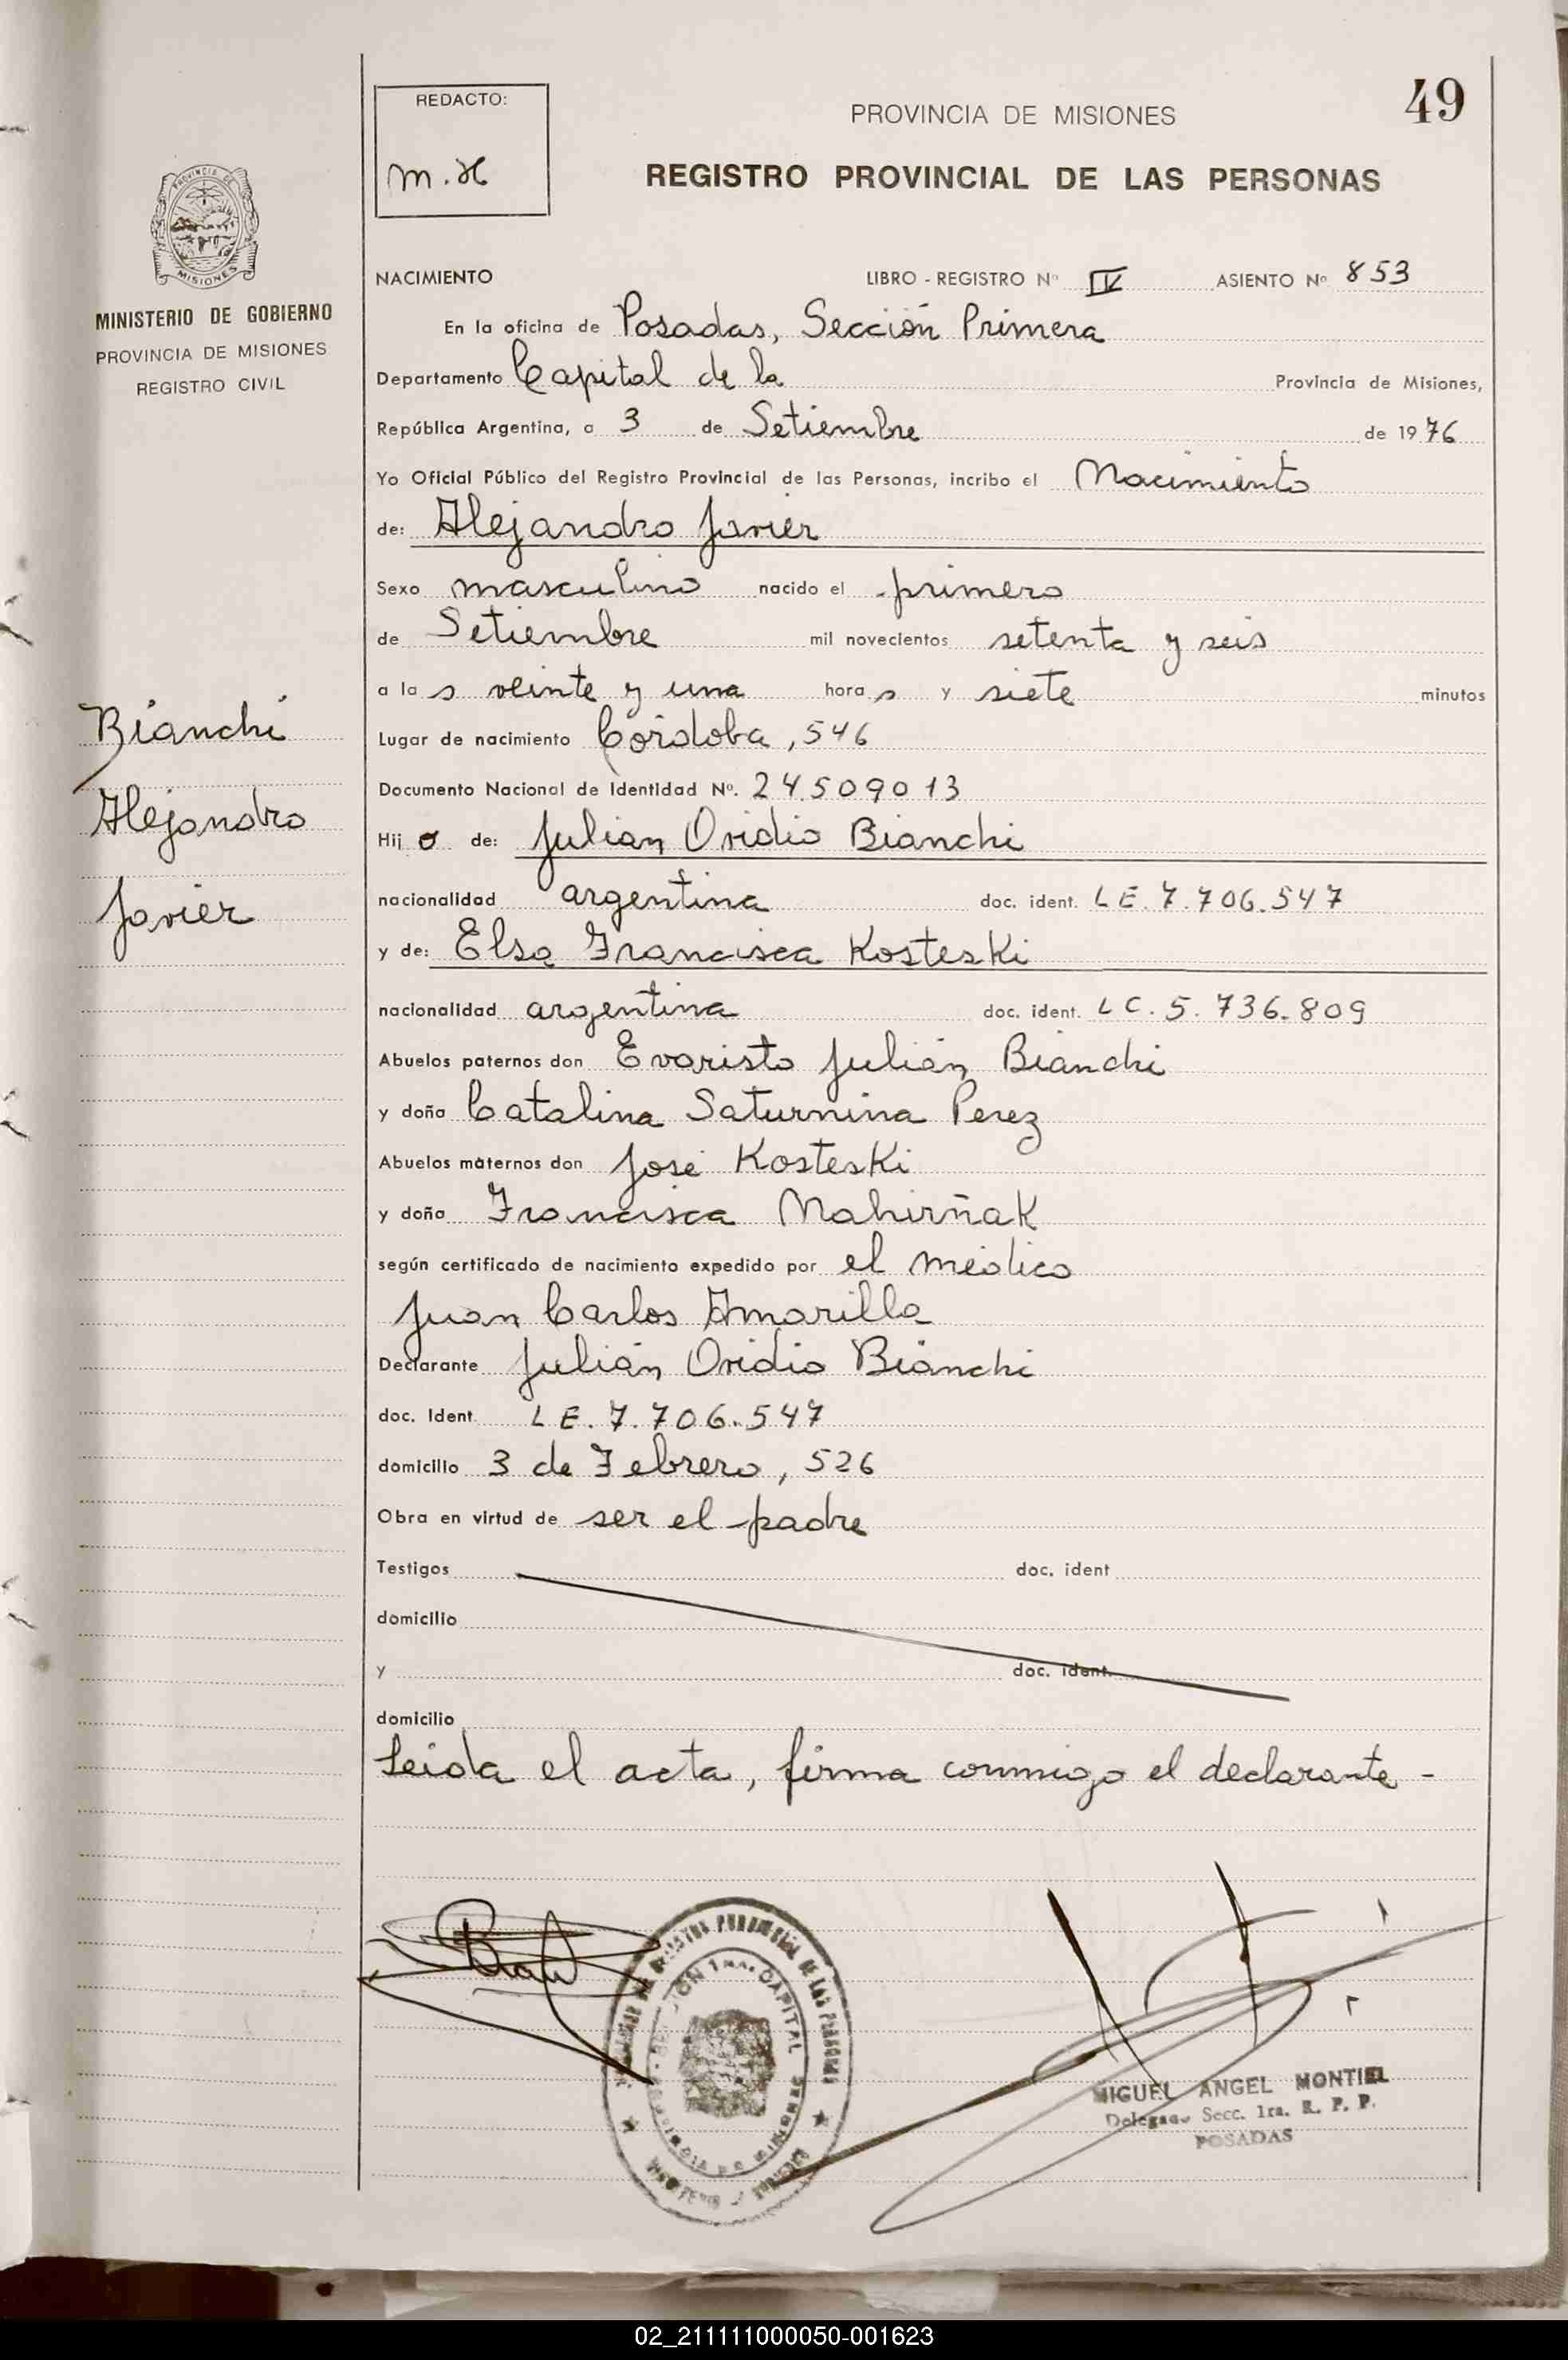 49
REDACTO:
m.H
PROVINCIA DE MISIONES
REGISTRO PROVINCIAL DE LAS PERSONAS
MISIONES
MINISTERIO DE GOBIERNO
PROVINCIA DE MISIONES
REGISTRO CIVIL
Bianchi
Alejandro
Javier
NACIMIENTO LIBRO - REGISTRO Nº IV ASIENTO Nº 853
En la oficina de Posadas, Sección Primera
Departamento Capital de la Provincia de Misiones,
República Argentina, a 3 de Setiembre de 1976
Yo Oficial Público del Registro Provincial de las Personas, incribo el Nacimiento
de: Alejandro Javier
Sexo masculino nacido el primero
de Setiembre mil novecientos setenta y seis
a la s veinte y una hora s y siete minutos
Lugar de nacimiento Córdoba, 546
Documento Nacional de Identidad Nº. 24.509013
Hij o de: Julian Ovidio Bianchi
nacionalidad argentina doc. ident. LE. 7.706.547
y de: Elsa Francisca Kosteski
nacionalidad argentina doc. ident. LC. 5.736.809
Abuelos paternos don Evaristo Julián Bianchi
y doña Catalina Saturnina Perez
Abuelos maternos don José Kosteski
y doña Francisca Mahirñak
según certificado de nacimiento expedido por el médico
Juan Carlos Amarilla
Declarante Julián Ovidio Bianchi
doc. Ident. LE. 7.706.547
domicilio 3 de Febrero, 526
Obra en virtud de ser el padre
Testigos doc. ident
domicilio
y doc. ident.
domicilio
Leida el acta, firma conmigo el declarante -
MIGUEL ANGEL MONTIEL
Delegado Secc. 1ra. R. P. P.
POSADAS
02_211111000050-001623